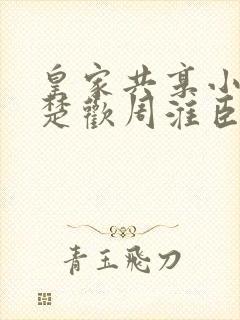 皇家共享小
楚歡周淮臣
青玉飛刀